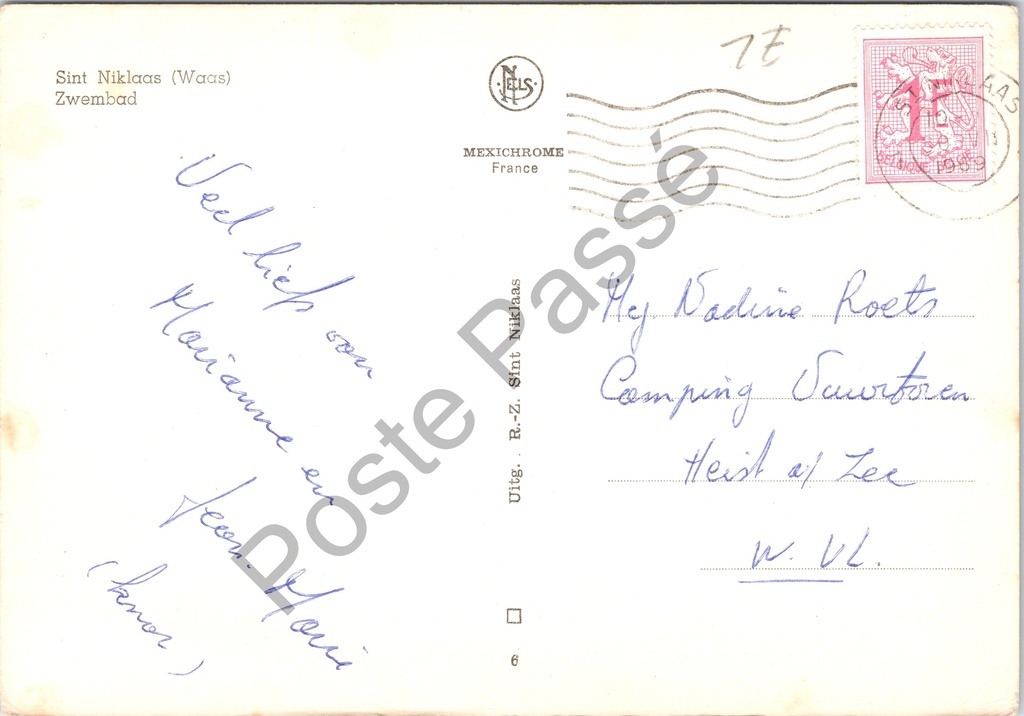 Sint Niklaas (Waas)
Zwembad
NELS
MEXICHROME
France
1E
1F
BELGIQUE
ST NIKLAAS
12
1969
Veel liefs van
Marianne en
Jean. Marie
(knor)
Uitg. . R.-Z. Sint Niklaas
6
Mej Nadine Roets
Camping Vuurtoren
Heist a/ Zee
W. VL.
Poste Passé